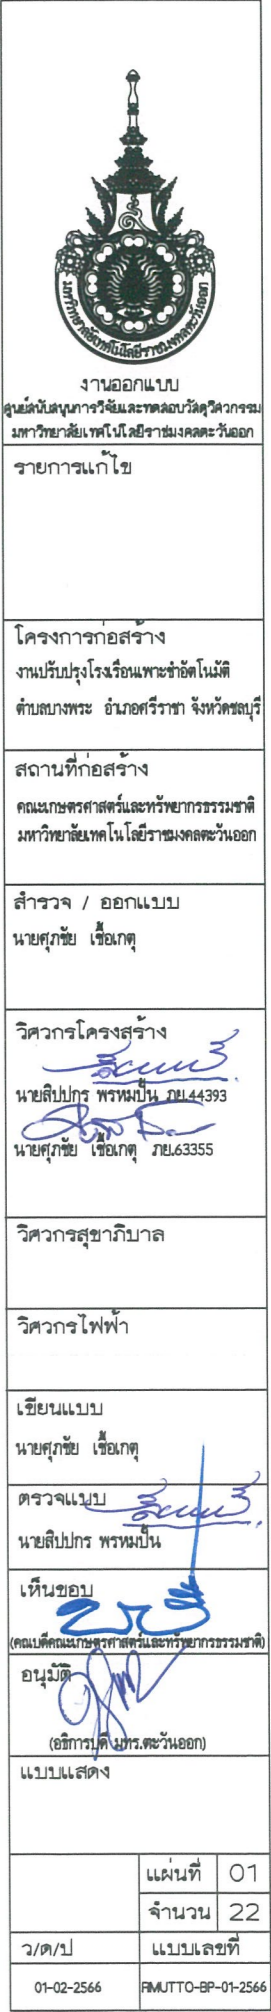 มหาวิทยาลัยเทคโนโลยีราชมงคลตะวันออก
งานออกแบบ
ศูนย์สนับสนุนการวิจัยและทดสอบวัสดุวิศวกรรม
มหาวิทยาลัยเทคโนโลยีราชมงคลตะวันออก
รายการแก้ไข
โครงการก่อสร้าง
งานปรับปรุงโรงเรือนเพาะชำอัตโนมัติ
ตำบลบางพระ อำเภอศรีราชา จังหวัดชลบุรี
สถานที่ก่อสร้าง
คณะเกษตรศาสตร์และทรัพยากรธรรมชาติ
มหาวิทยาลัยเทคโนโลยีราชมงคลตะวันออก
สำรวจ / ออกแบบ
นายศุภชัย เชื้อเกตุ
วิศวกรโครงสร้าง
นายสิปปกร พรหมปั้น ภย.44393
นายศุภชัย เชื้อเกตุ ภย.63355
วิศวกรสุขาภิบาล
วิศวกรไฟฟ้า
เขียนแบบ
นายศุภชัย เชื้อเกตุ
ตรวจแบบ
นายสิปปกร พรหมปั้น
เห็นชอบ
(คณบดีคณะเกษตรศาสตร์และทรัพยากรธรรมชาติ)
อนุมัติ
(อธิการบดี มทร.ตะวันออก)
แบบแสดง
แผ่นที่ 01
จำนวน 22
ว/ด/ป แบบเลขที่
01-02-2566 RMUTTO-BP-01-2566